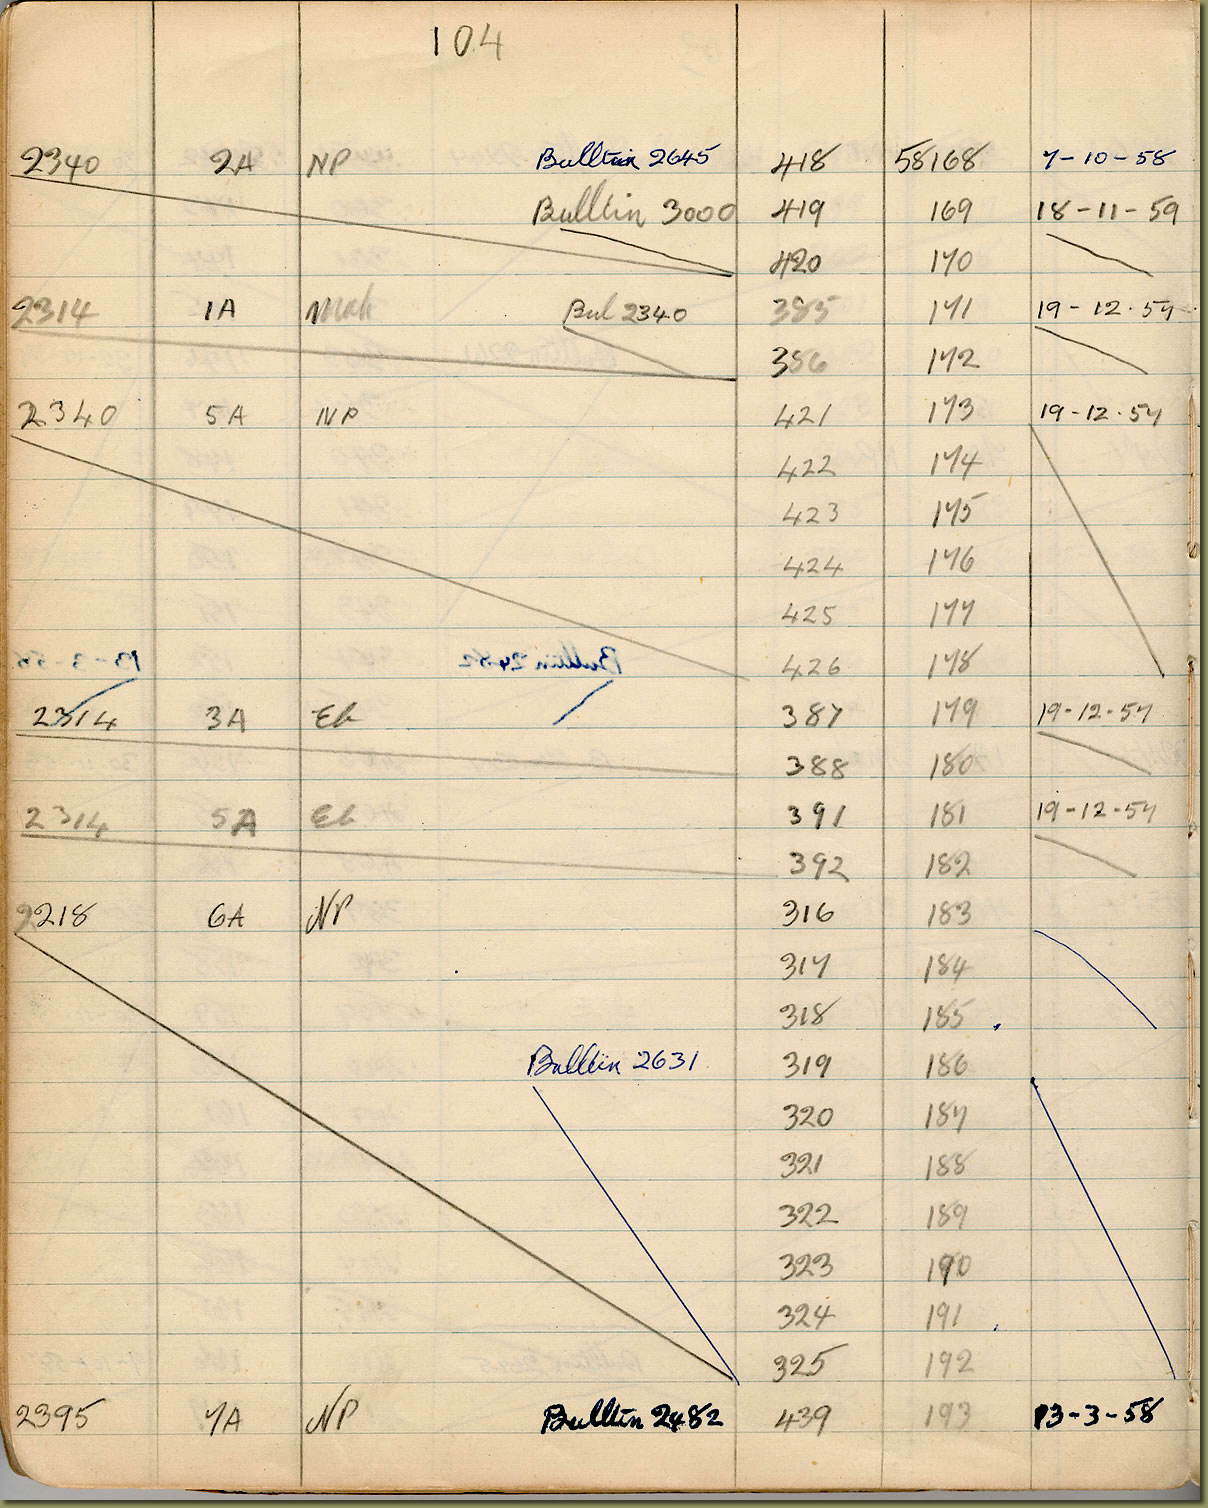 104
2340 2A NP Bulltin 2645 418 58168 7-10-58
Bulltin 3000 419 169 18-11-59
420 170
2314 1A Bul 2340 385 171 19-12-57
386 172
2340 5A NP 421 173 19-12-57
422 174
423 175
424 176
425 177
13-3-58 Bulltin 2482 426 178
2314 3A Eb 387 179 19-12-57
388 180
2314 5A Eb 391 181 19-12-57
392 182
2218 6A NP 316 183
317 184
318 185
Bulltin 2631 319 186
320 187
321 188
322 189
323 190
324 191
325 192
2395 7A NP Bulltin 2482 439 193 13-3-58